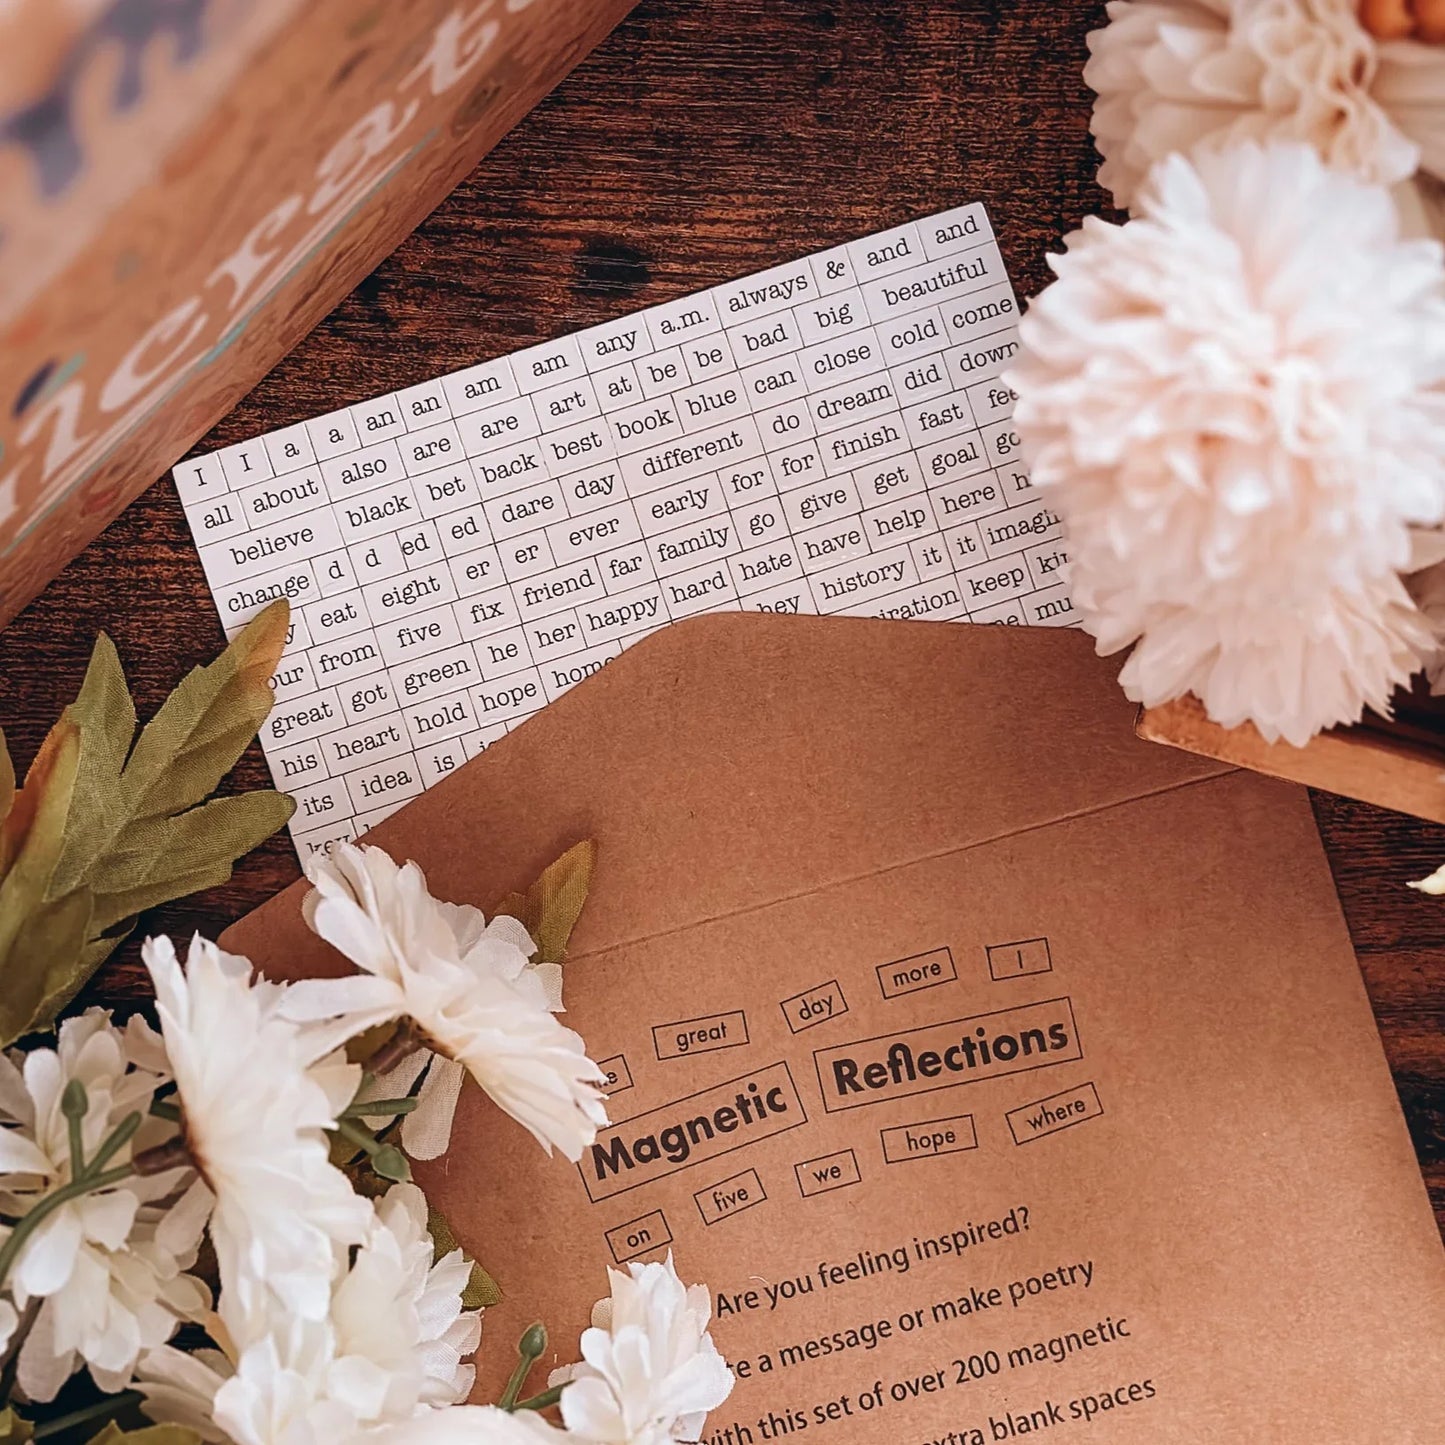 I I a a an an am am any a.m. always & and and
all about also are are art at be be bad big beautiful
believe black bet back best book blue can close cold come
change d d ed ed dare day different do dream did down
eat eight er er ever early for for finish fast
from five fix friend far family go give get goal
great got green he her happy hard hate have help here
his heart hold hope history it it
its idea is keep
great day more I
Magnetic Reflections
on five we hope where
Are you feeling inspired?
a message or make poetry
with this set of over 200 magnetic
blank spaces